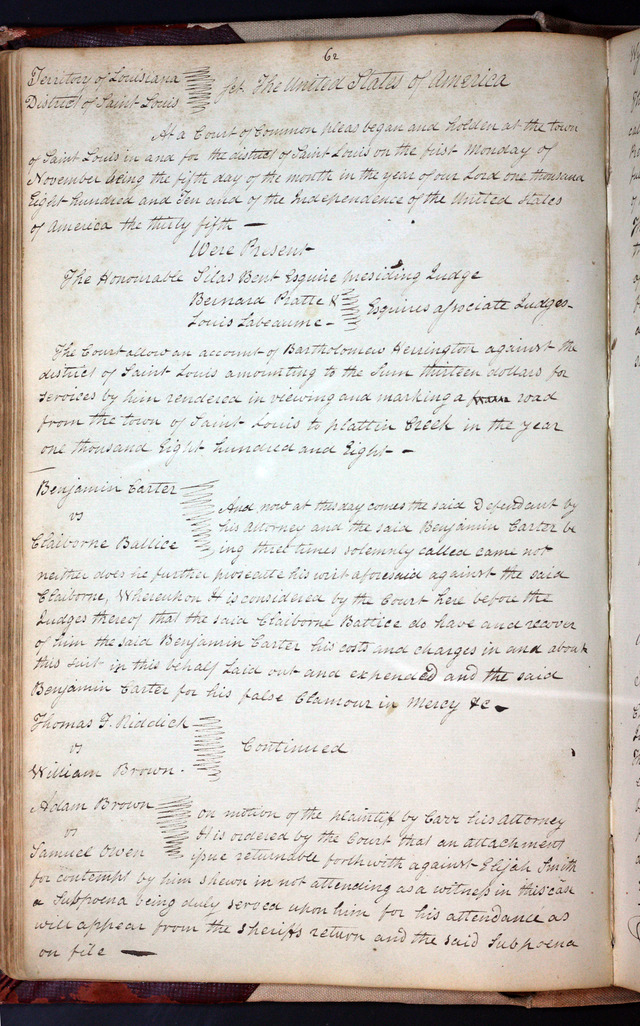 62
Territory of Louisiana
District of Saint Louis
Sct. The United States of America
At a Court of Common pleas began and holden at the town
of Saint Louis in and for the district of Saint Louis on the first Monday of
November being the fifth day of the month in the year of our Lord one thousand
Eight hundred and Ten and of the Independence of the United States
of America the thirty fifth —
Were Present
The Honourable Silas Bent Esquire presiding Judge
Bernard Pratte &
Louis Labeaume –
Esquires associate Judges –
The Court allow an account of Bartholomew Herrington against the
district of Saint Louis amounting to the Sum thirteen dollars for
Services by him rendered in viewing and marking a road
from the town of Saint Louis to plattin Creek in the year
one thousand Eight hundred and Eight –
Benjamin Carter
vs
Claiborne Battice
And now at this day comes the said Defendant by
his attorney and the said Benjamin Carter be
ing three times solemnly called came not
neither does he further prosecute his writ aforesaid against the said
Claiborne, Whereupon It is considered by the Court here before the
Judges thereof that the said Claiborne Battice do have and recover
of him the said Benjamin Carter his costs and charges in and about
this suit in this behalf laid out and expended and the said
Benjamin Carter for his false Clamour in Mercy &c –
Thomas F. Riddick
vs
William Brown.
Continued
Adam Brown
vs
Samuel Owen
on motion of the plaintiff by Carr his attorney
It is ordered by the Court that an attachment
issue returnable forthwith against Elijah Smith
for contempt by him shewn in not attending as a witness in this case
a Subpoena being duly served upon him for his attendance as
will appear from the Sheriffs return and the said Subpoena
on file —